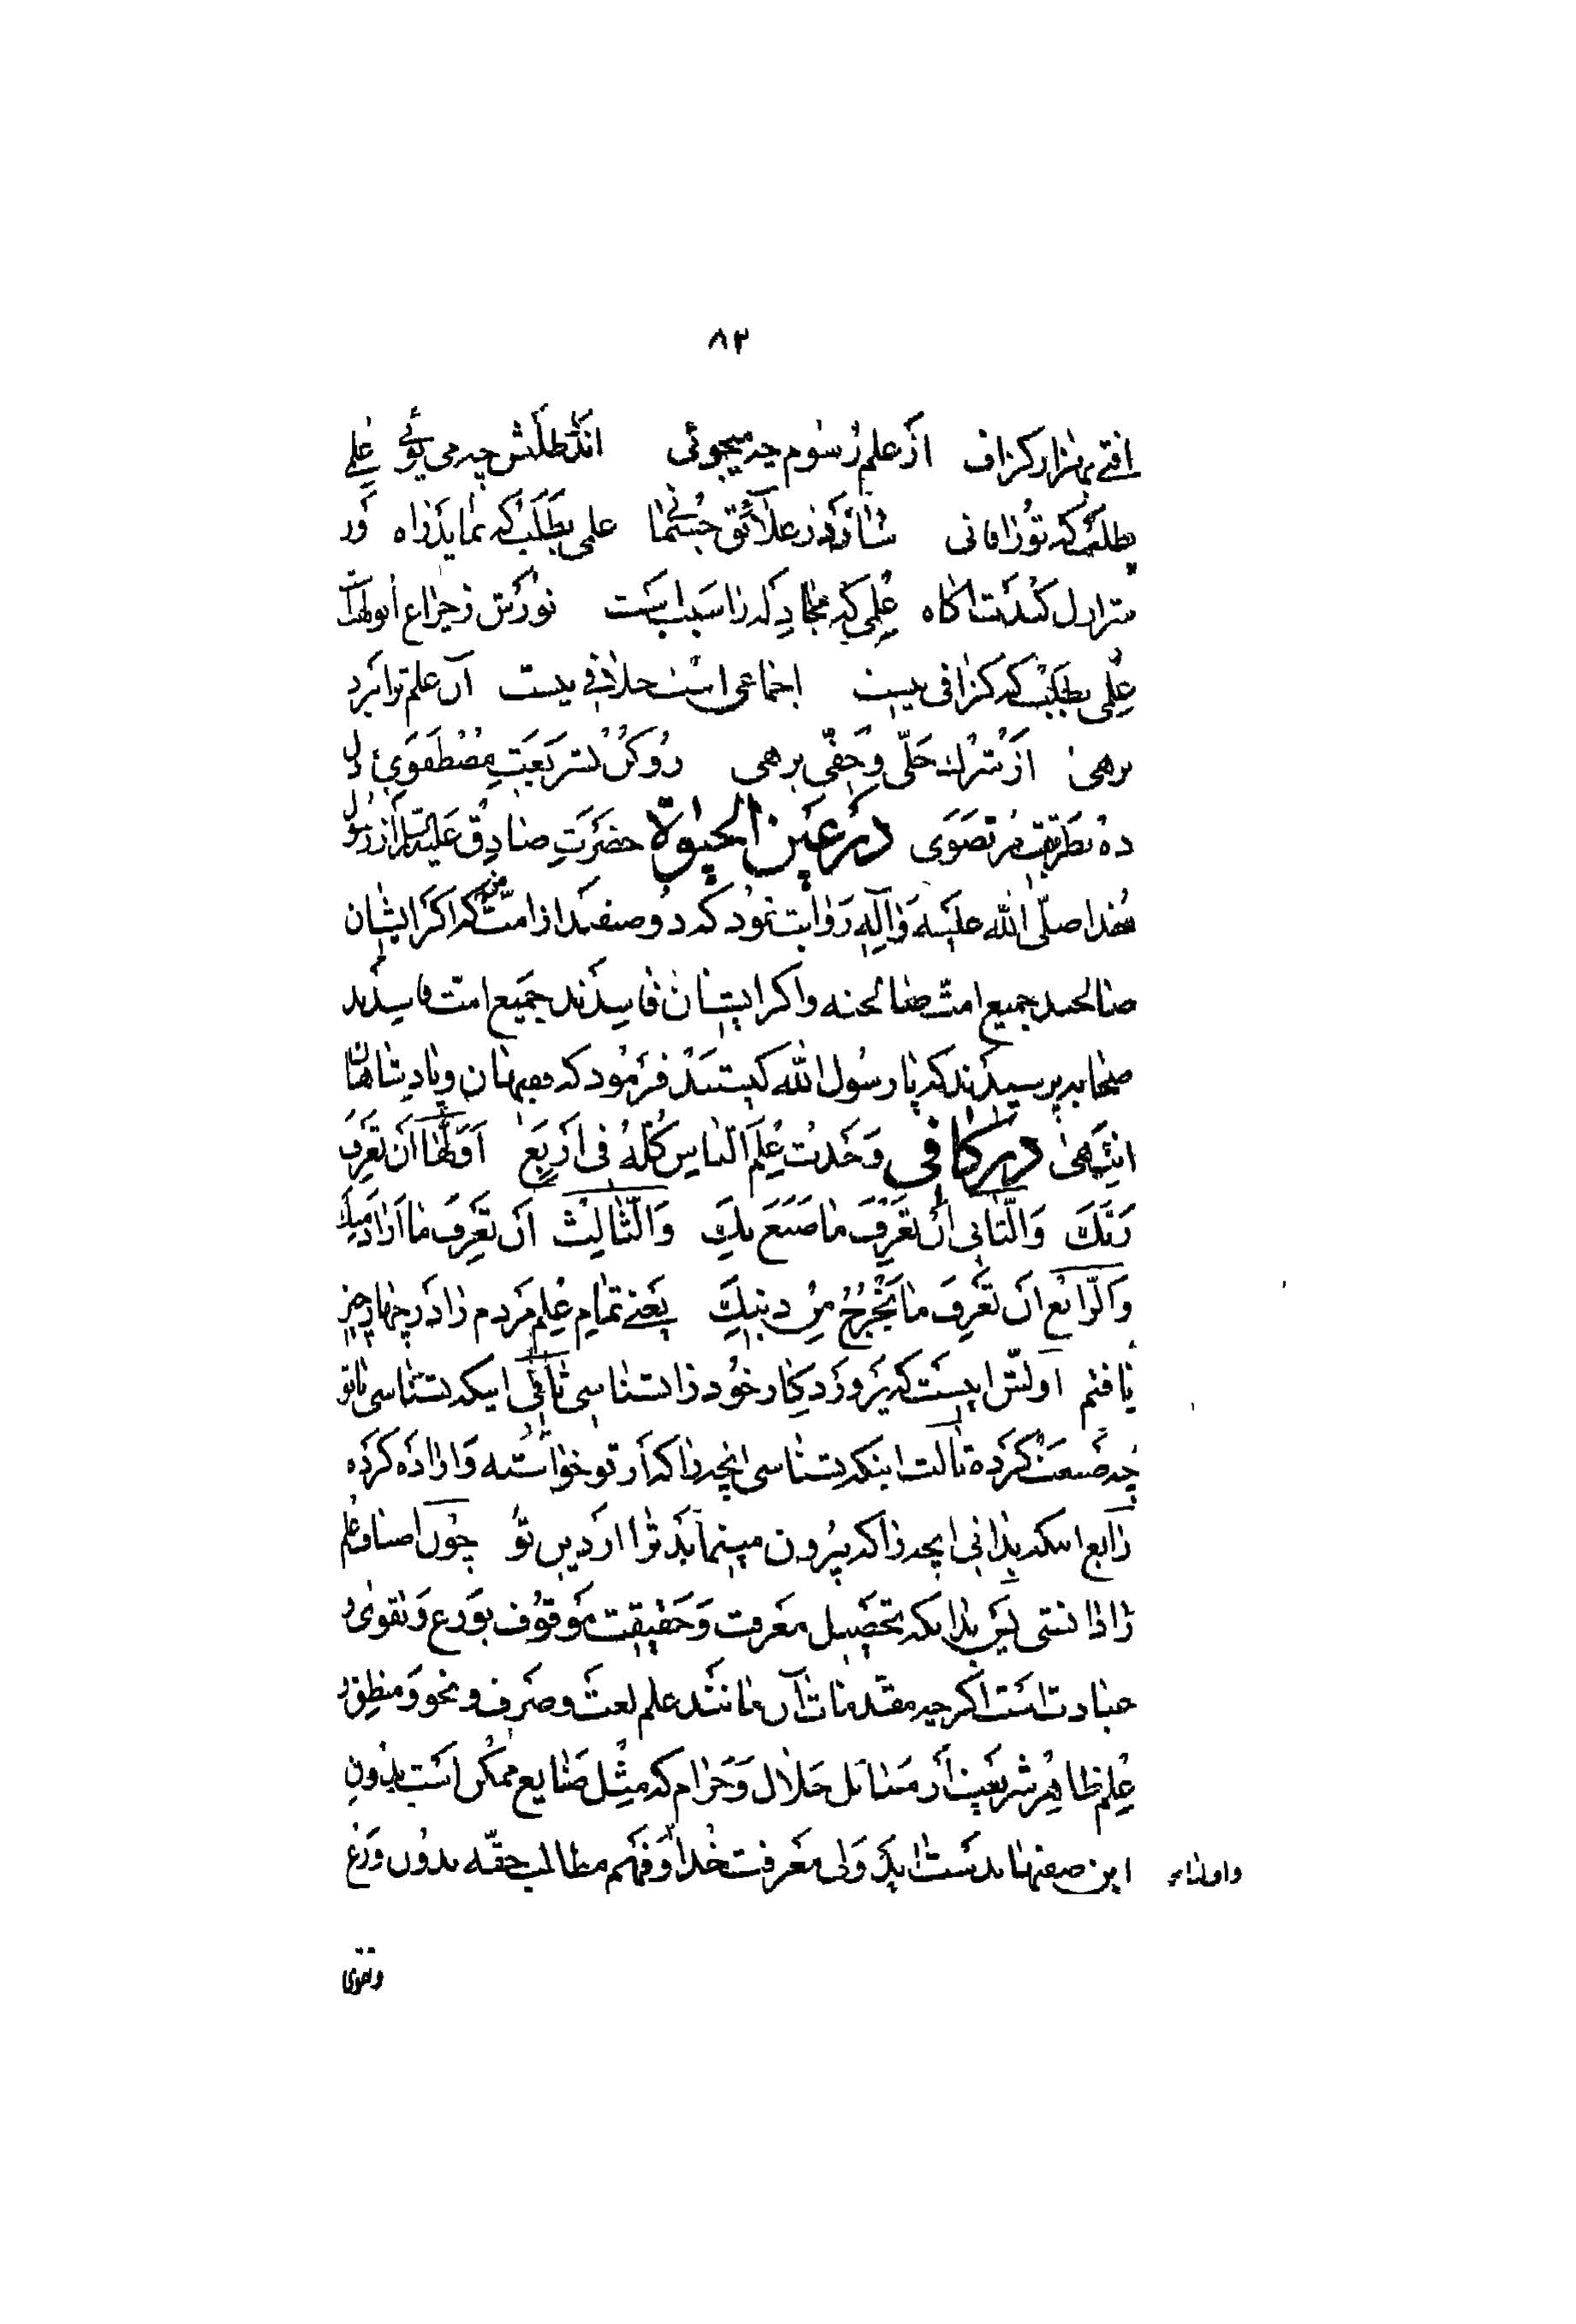 ۸۲
افتی بهزار کزاف از علم رسوم چه میجوئی اندر طلبش چه می پوئی علمی
بطلب که تو را فانی سازد ز علائق جسمانی علمی بطلب که نماید راه ور
سر ازل کندت اکاه علمی که مجادله را سبب است نورش ز چراغ ابولهب
علمی بطلب که کزافی نیست اجماعی است خلافی نیست آن علم ترا ببرد
برهی از شرک جلی و خفی برهی رو کن بشریعت مصطفوی دل
ده بطریقت مرتضوی در عین الحیوة حضرت صادق علیه السلام از رسول
خدا صلی الله علیه و آله روایت نمود که دو صنفند از امت من که اکر ایشان
صالحند جمیع امت صالحند و اکر ایشان فاسدند جمیع امت فاسدند
صحابه پرسیدند که یا رسول الله کیستند فرمود که فقیهان و پادشاهان
انتهی در کافی وَجَدتُ عِلمَ الناسِ کُلَّهُ فی اَربَعٍ اَوَّلُها اَن تَعرِفَ
رَبَّكَ وَالثّانی اَن تَعرِفَ ما صَنَعَ بِكَ وَالثّالِث اَن تَعرِفَ ما اَرادَ مِنكَ
وَالرّابع اَن تَعرِفَ ما یُخرِجُكَ مِن دینِكَ یعنی تمام علم مردم را در چهار چیز
یافتم اولش اینست که پروردکار خود را بشناسی ثانی اینکه بشناسی با تو
چه صنعت کرده ثالث اینکه بشناسی انچه را که از تو خواسته و اراده کرده
رابع اینکه بدانی انچه را که بیرون مینماید ترا از دین تو چون اصناف علم
را دانستی پس بدانکه تحصیل معرفت و حقیقت موقوف بورع و تقوی و
عبادت است اکر چه مقدمات آن مانند علم لغت و صرف و نحو و منطق و
علم ظاهر شریعت از مسائل حلال و حرام که مثل صنایع ممکن است بدون
این صفتها بدست اید ولی معرفت خدا و فهم مطالب حقه بدون ورع
وتقوی